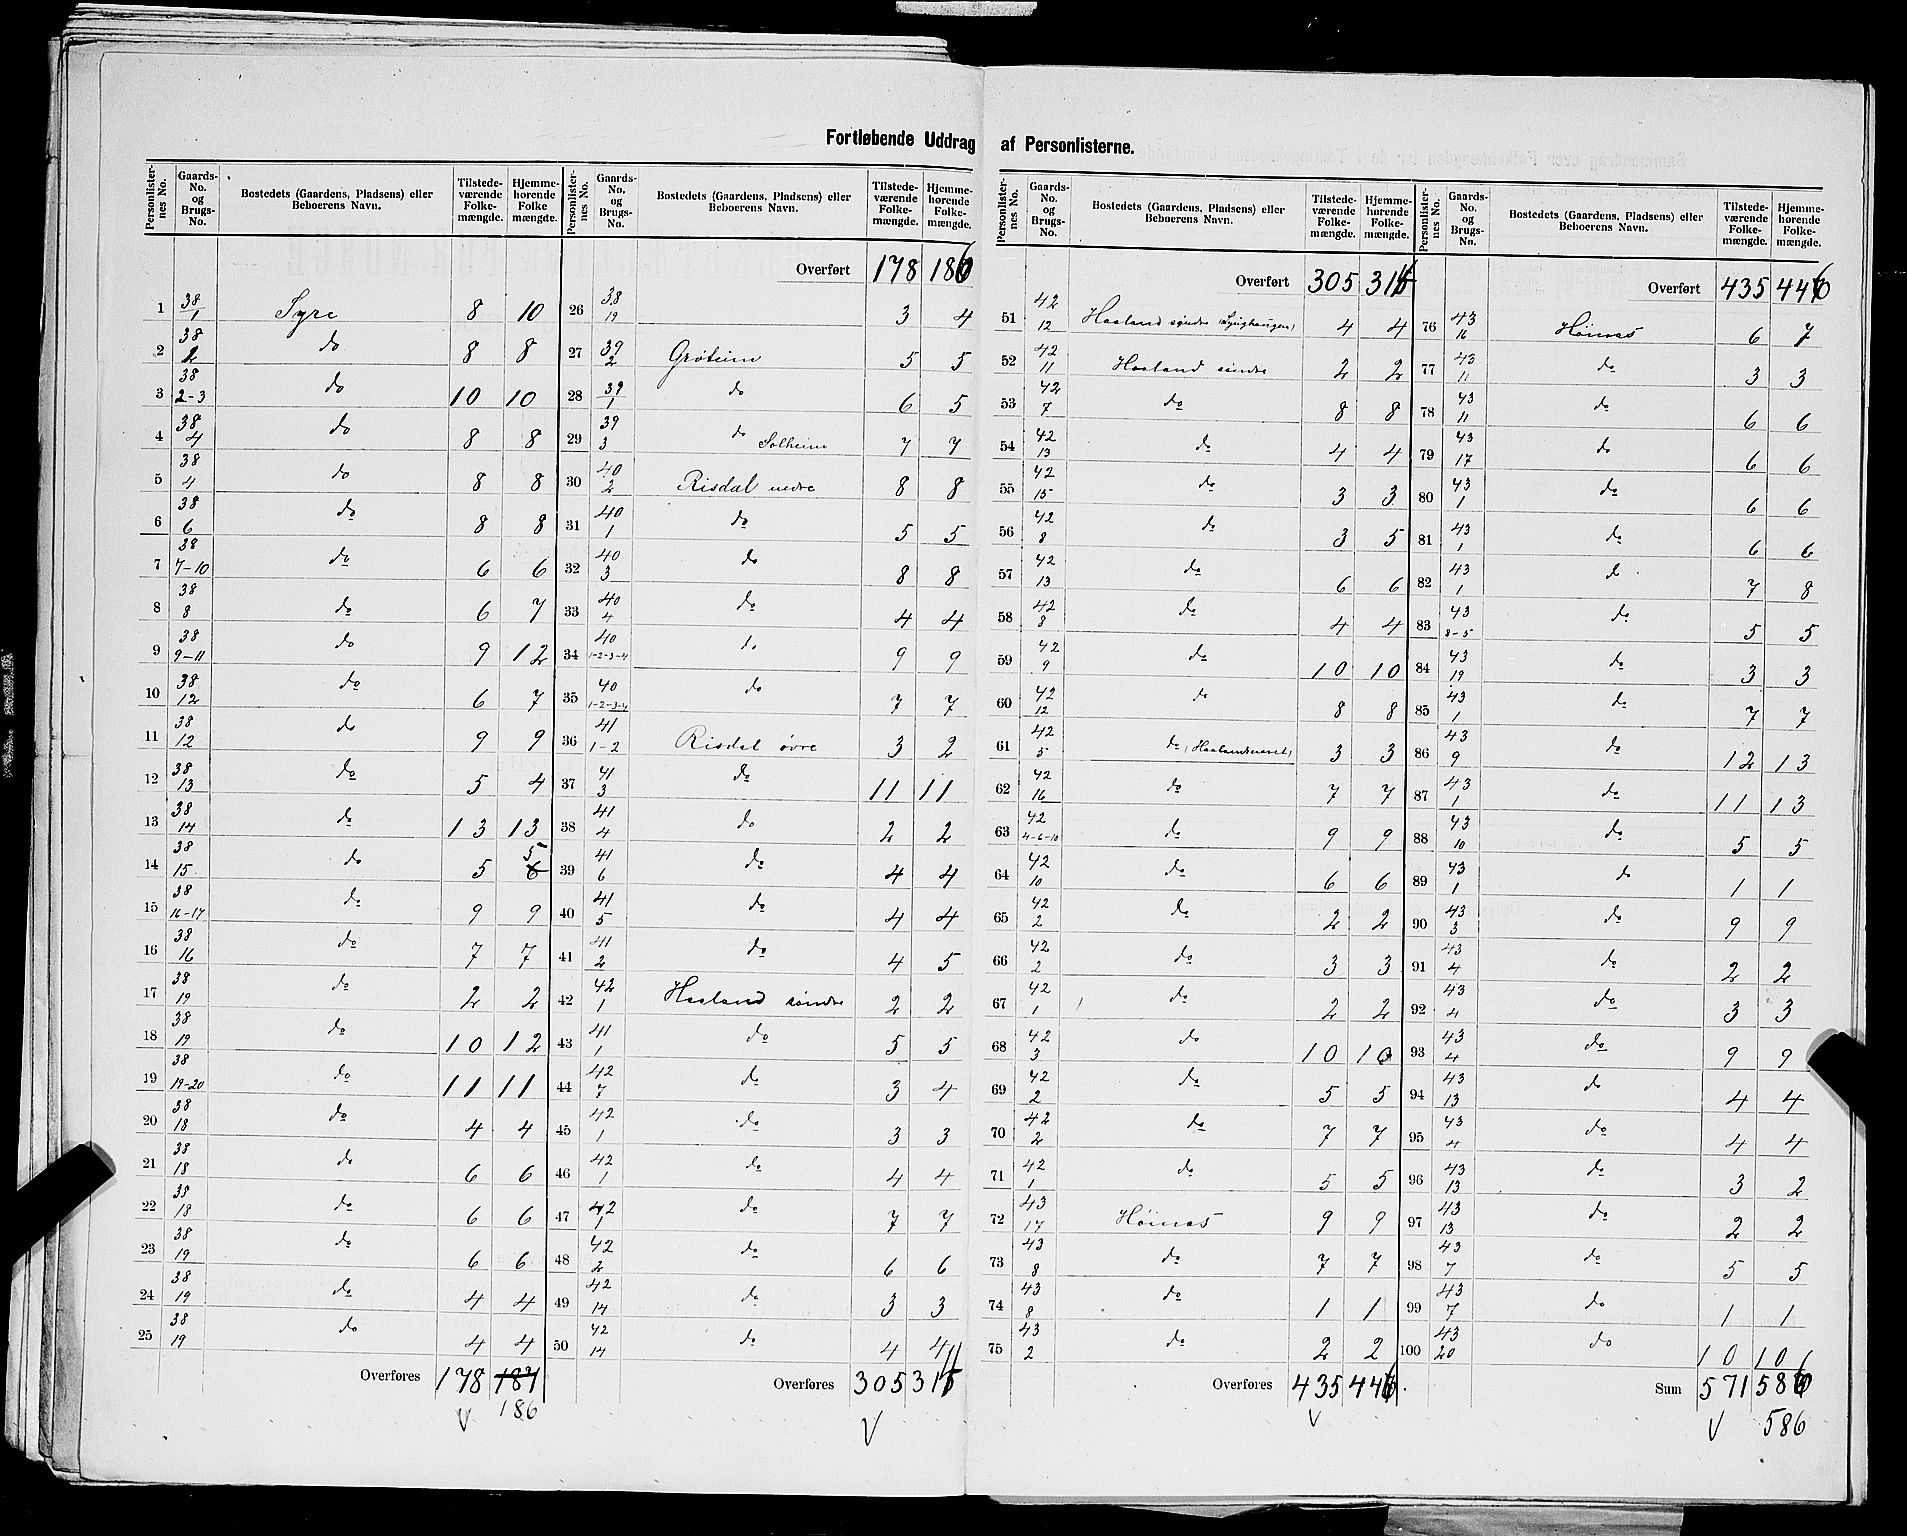 Fortløbende Uddrag af Personlisterne.
Personlister-nes No. | Gaards-No. og Brugs-No. | Bostedets (Gaardens, Pladsens) eller Beboerens Navn. | Tilstede-værende Folke-mængde. | Hjemme-hørende Folke mængde.
1 38/1 Syre 8 10
2 38/2 do 8 8
3 38/2-3 do 10 10
4 38/4 do 8 8
5 38/4 do 8 8
6 38/6 do 8 8
7 38/7-10 do 6 6
8 38/8 do 6 7
9 38/9-11 do 9 12
10 38/12 do 6 7
11 38/12 do 9 9
12 38/13 do 5 4
13 38/14 do 13 13
14 38/15 do 5 6 5
15 38/16-17 do 9 9
16 38/16 do 7 7
17 38/19 do 2 2
18 38/19 do 10 12
19 38/19-20 do 11 11
20 38/18 do 4 4
21 38/18 do 6 6
22 38/18 do 6 6
23 38/19 do 6 6
24 38/19 do 4 4
25 38/19 do 4 4
Overføres 178 187
V 186
Personlister-nes No. | Gaards-No. og Brugs-No. | Bostedets (Gaardens, Pladsens) eller Beboerens Navn. | Tilstede-værende Folke-mængde. | Hjemme-hørende Folke-mængde.
Overført 178 186
26 38/19 3 4
27 39/2 Grøteim 5 5
28 39/1 do 6 5
29 39/3 do Solheim 7 7
30 40/2 Risdal nedre 8 8
31 40/1 do 5 5
32 40/3 do 8 8
33 40/4 do 4 4
34 40/1-2-3-4 do 9 9
35 40/1-2-3-4 do 7 7
36 41/1-2 Risdal øvre 3 2
37 41/3 do 11 11
38 41/4 do 2 2
39 41/6 do 4 4
40 41/5 do 4 4
41 41/2 do 4 5
42 42/1 Haaland søndre 2 2
43 41/1 do 5 5
44 42/7 do 3 4
45 42/1 do 3 3
46 42/1 do 4 4
47 42/1 do 7 7
48 42/2 do 6 6
49 42/14 do 3 3
50 42/14 do 4 4
Overføres 305 316
V
Personlister-nes No. | Gaards-No. og Brugs-No. | Bostedets (Gaardens, Pladsens) eller Beboerens Navn. | Tilstede-værende Folke-mængde. | Hjemme-hørende Folke-mængde.
Overført 305 316
51 42/12 Haaland søndre (Lynghaugen) 4 4
52 42/11 Haaland søndre 2 2
53 42/7 do 8 8
54 42/13 do 4 4
55 42/15 do 3 3
56 42/8 do 3 5
57 42/13 do 6 6
58 42/8 do 4 4
59 42/9 do 10 10
60 42/12 do 8 8
61 42/5 do (Haalandsneset) 3 3
62 42/16 do 7 7
63 42/4-6-10 do 9 9
64 42/10 do 6 6
65 42/2 do 2 2
66 42/2 do 3 3
67 42/1 do 2 2
68 42/3 do 10 10
69 42/2 do 5 5
70 42/2 do 7 7
71 42/1 do 5 5
72 43/17 Høines 9 9
73 43/8 do 7 7
74 43/8 do 1 1
75 43/2 do 2 2
Overføres 435 446.
V
Personlister-nes No. | Gaards-No. og Brugs-No. | Bostedets (Gaardens, Pladsens) eller Beboerens Navn. | Tilstede-værende Folke-mængde. | Hjemme-hørende Folke-mængde.
Overført 435 446
76 43/16 Høines 6 7
77 43/11 do 3 3
78 43/11 do 6 6
79 43/17 do 6 6
80 43/1 do 6 6
81 43/1 do 6 6
82 43/1 do 7 8
83 43/8-5 do 5 5
84 43/19 do 3 3
85 43/1 do 7 7
86 43/9 do 12 13
87 43/1 do 11 13
88 43/10 do 5 5
89 43/1 do 1 1
90 43/3 do 9 9
91 43/4 do 2 2
92 43/4 do 3 3
93 43/4 do 9 9
94 43/13 do 4 4
95 43/4 do 4 4
96 43/13 do 3 2
97 43/13 do 2 2
98 43/7 do 5 5
99 43/7 do 1 1
100 43/20 do 10 10
Sum 571 586
V 586